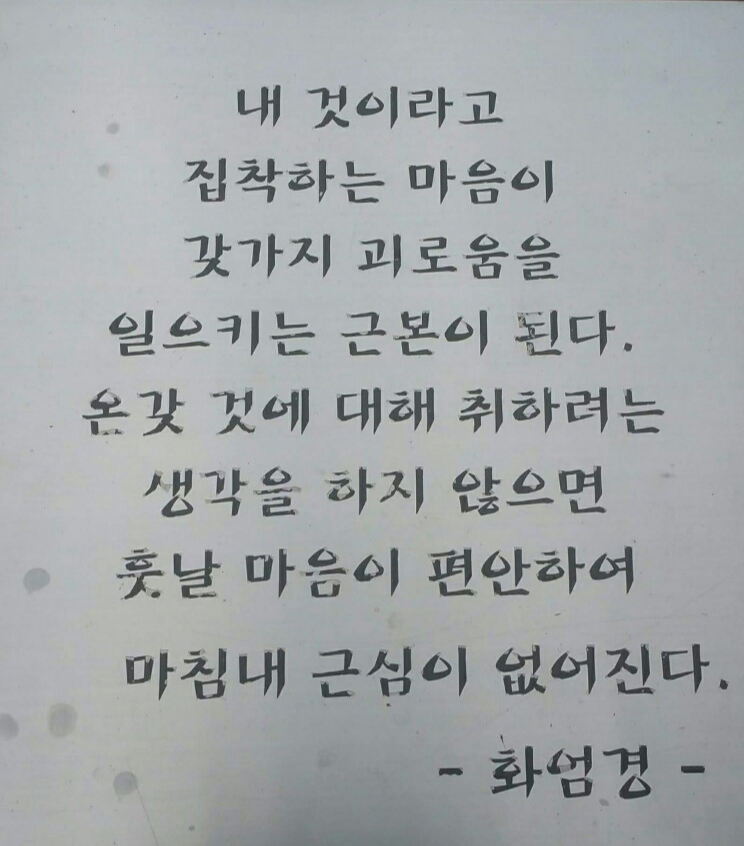 내 것이라고
집착하는 마음이
갖가지 괴로움을
일으키는 근본이 된다.
온갖 것에 대해 취하려는
생각을 하지 않으면
훗날 마음이 편안하여
마침내 근심이 없어진다.
- 화엄경 -